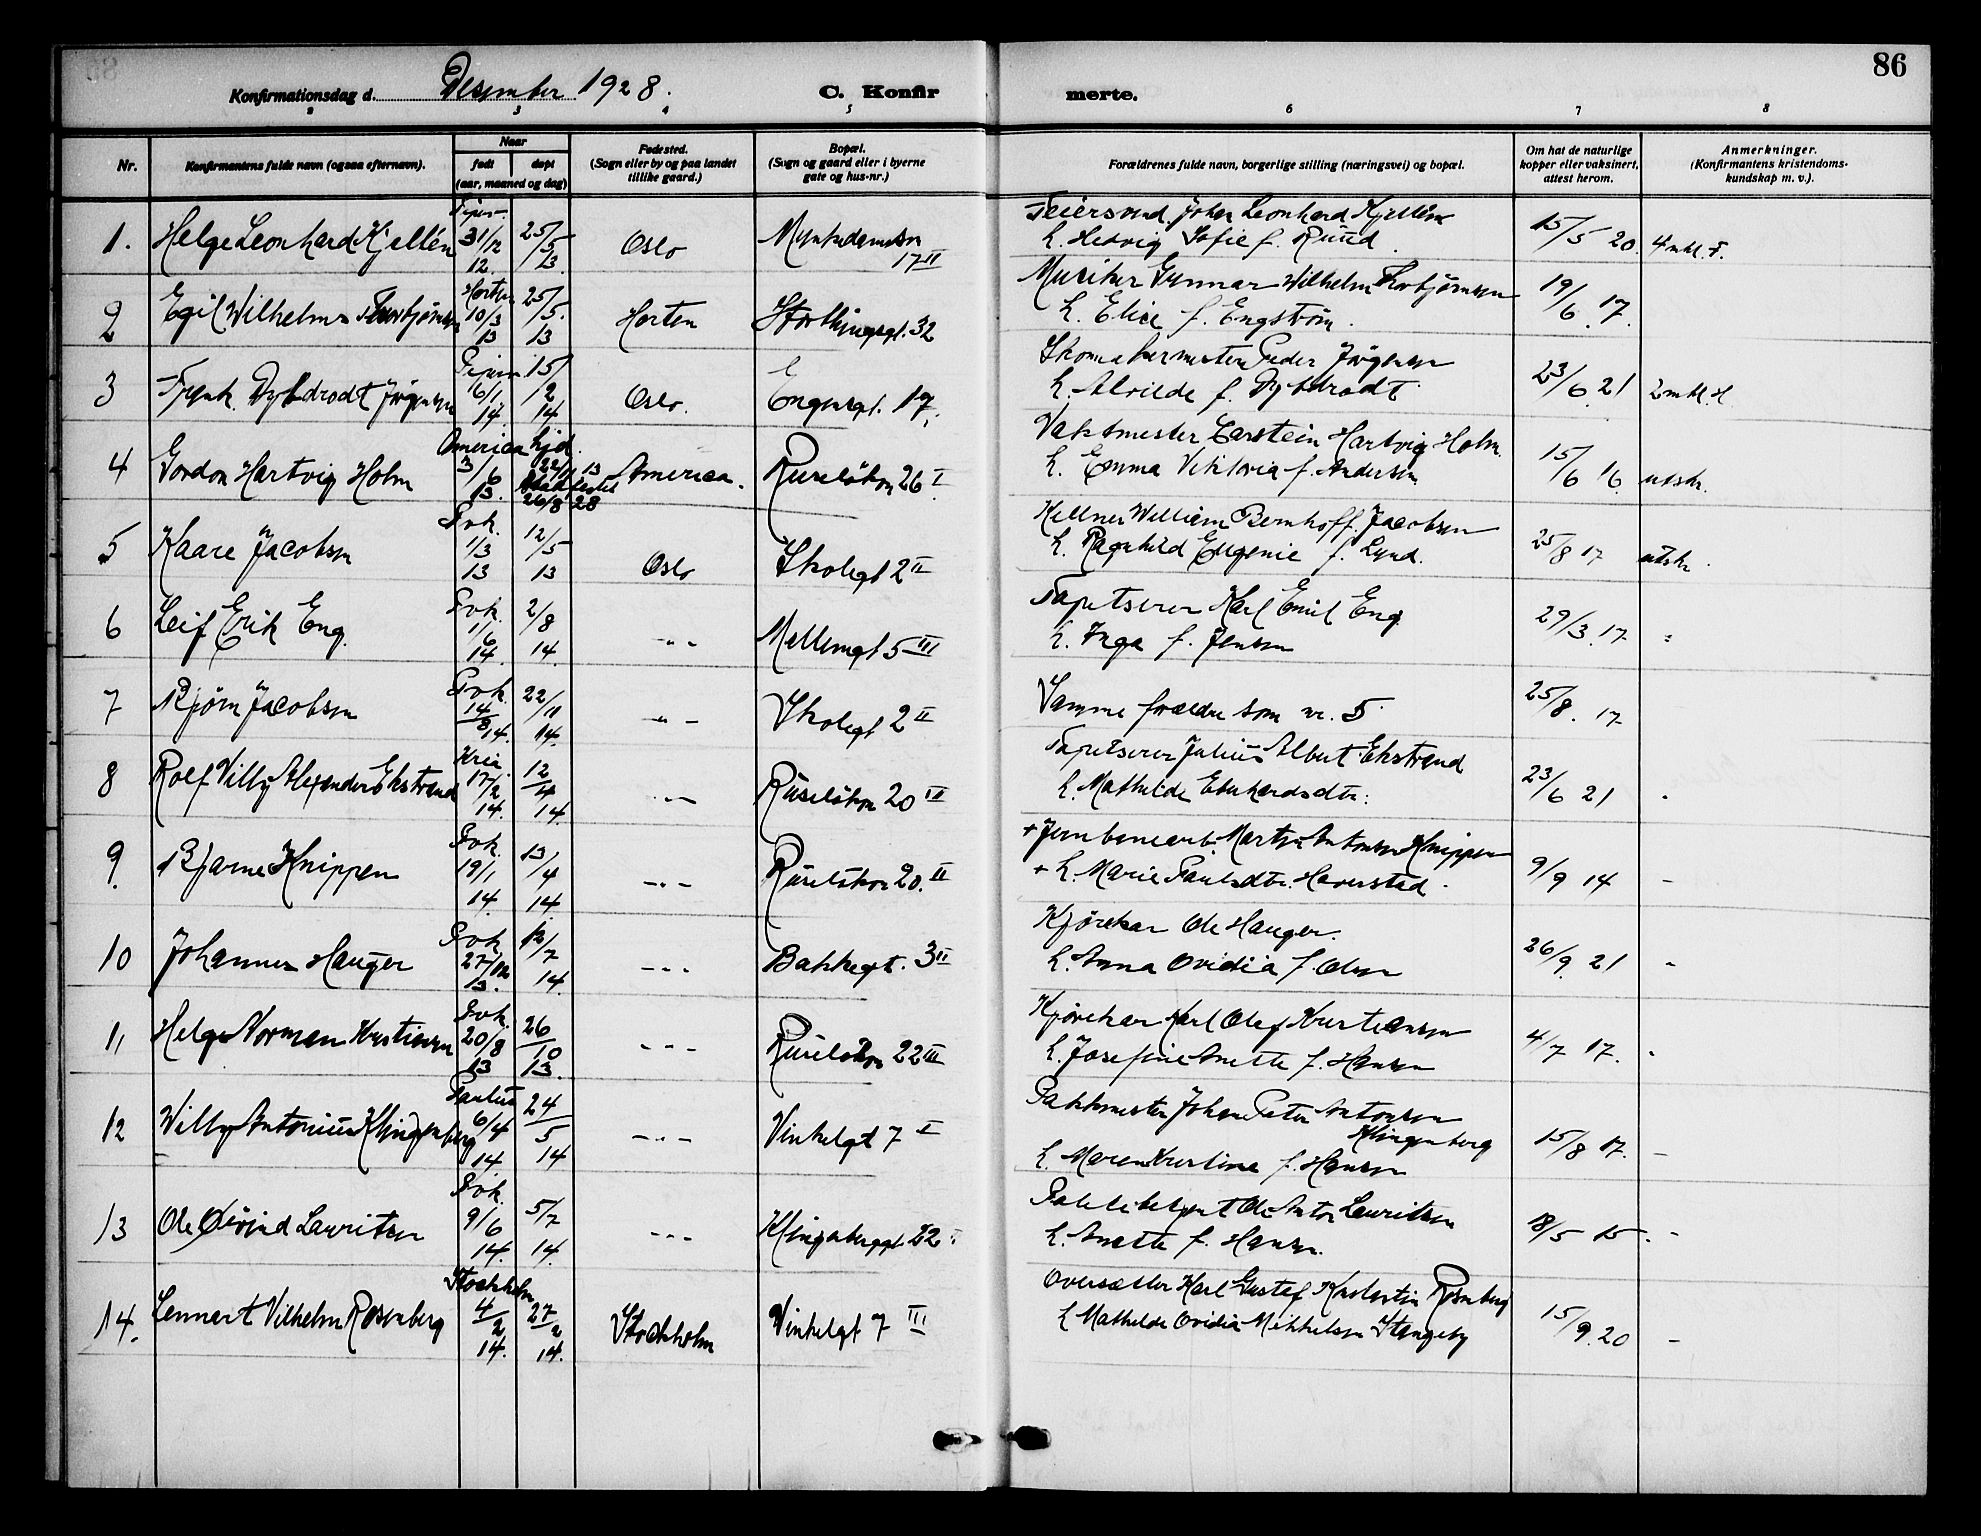 86
Konfirmationsdag d. Desember 1928.
C. Konfirmerte.
2 3 4 5 6 7 8
Nr.
Konfirmantens fulde navn (ogsaa efternavn).
Naar
født
døpt
(aar, maaned og dag)
Fødested.
(Sogn eller by og paa landet
tillike gaard.)
Bopæl.
(Sogn og gaard eller i byerne
gate og hus-nr.)
Forældrenes fulde navn, borgerlige stilling (næringsvei) og bopæl.
Om hat de naturlige
kopper eller vaksinert,
attest herom.
Anmerkninger.
(Konfirmantens kristendoms-
kundskap m. v.).
1. Helge Leonhard Kjellén 31/12 12. 25/5 13. Oslo 17 II
Johan Leonhard Kjellén
h. Hedvig Sofie f. Ruud. 15/5 20.
2 Egil Wilhelm Thorbjørnsen Horten 10/3 13 25/5. 13 Horten Storthingsgt. 32
Musiker Gunnar Wilhelm Thorbjørnsen
h. Elise f. Engstrøm. 19/6 17.
3 Jørgensen 6/1 14. 15/2 14 Oslo. Engensgt. 17.
Skomakermester Peder Jørgensen
h. Alvilde f. 23/6 21
4 Gordon Hartvig Holm America 3/6 13. 22/11 13 26/8 28 America. Ruseløkvn 26 I
Vaktmester Carstein Hartvig Holm.
h. Emma Viktoria f. Andersen 15/6 16. utskr.
5 Kaare Jacobsen Frk. 1/3 13 12/5 13 Oslo Skolegt 2 II
Kellner William Bernhoff Jacobsen
h. Ragnhild Eugenie f. Lund. 25/8 17 utskr.
6 Leif Erik Eng. Frk. 1/6 14. 2/8 14. -"- Mellemgt 5 III
Tapetserer Karl Emil Eng
h. Inga f. Jensen 29/3 17. "
7 Bjørn Jacobsen Frk. 14/8 14. 22/11 14. -"- Skolegt 2 II
Samme foreldre som nr. 5 25/8. 17
8 Rolf Villy Alexander Ekstrand Kria. 17/2 14. 12/4 14. -"- Ruseløkvn 20 III
Tapetserer Julius Albert Ekstrand
h. Mathilde 23/6 21
9. Bjarne Knippen Frk. 19/1 14. 13/4 14. -"- Ruseløkvn 20. II
+ Jernbanearb. Martin Antonsen Knippen
+ h. Marie Paulsdtr. Haverstad. 9/9 14 -
10 Johannes Hauger Frk. 27/12 13. 12/7 14. -"- Bakkegt. 3 II
Kjørekar Ole Hauger.
h. Anna Ovidia f. Olsen 26/9. 21 -
11 Helge Norman Kristiansen Frk. 20/8 13 26/10 13. -"- Ruseløkvn 22 III
Kjørekar Karl Olaf Kristiansen
h. Josefine Anette f. Hansen 4/7 17.
12 Willy Antonius Klingenberg Paulus 6/4 14 24/5 14 -"- Vinkelgt 7 I
Pakkmester Johan Peter Antonsen
Klingenberg
h. Maren Kristine f. Hansen 15/8 17. -
13 Ole Øivind Lauritsen Frk. 9/6 14. 5/7 14. -"- Klingenberggt. 22
Ole Anton Lauritsen
h. Anette f. Hansen. 18/5 15. -
14. Lennart Vilhelm Rosenberg Stockholm 4/2 14. 27/2 14. Stockholm Vinkelgt 7 III
Oversætter Karl Gustaf Konstantin Rosenberg
h. Mathilde Ovidia Mikkelsen Stangeby 15/9. 20 -